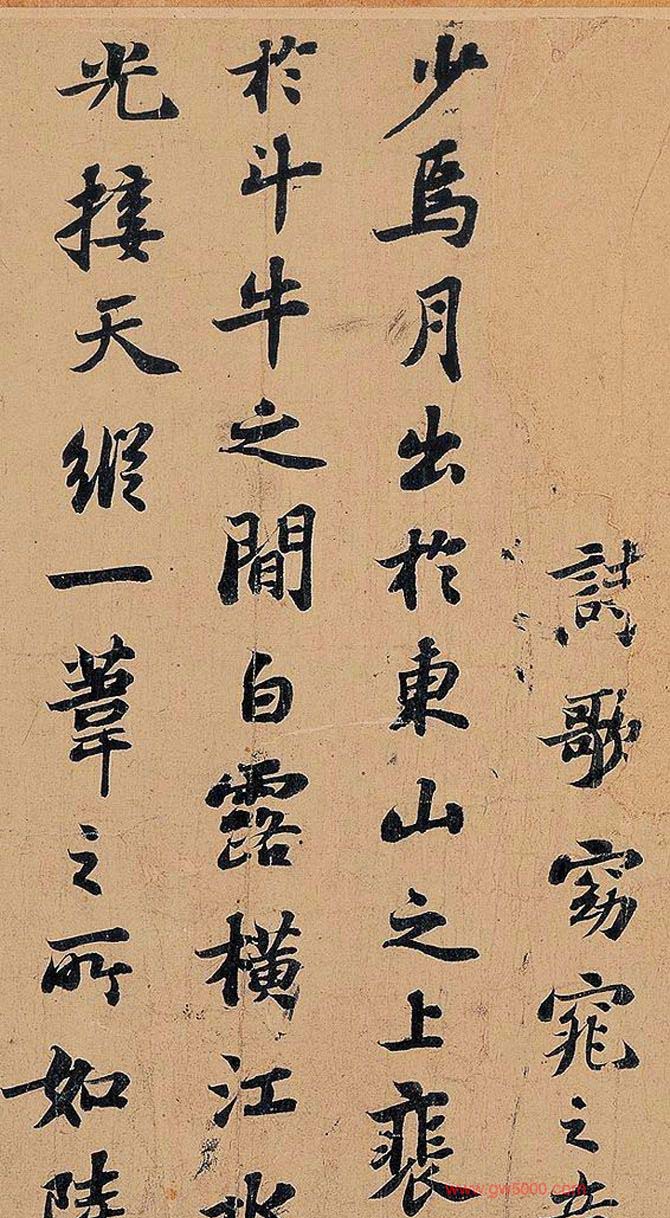 詩歌窈窕之章
少焉月出於東山之上裴
於斗牛之間白露橫江水
光接天縱一葦之所如陵
www.gw5000.com